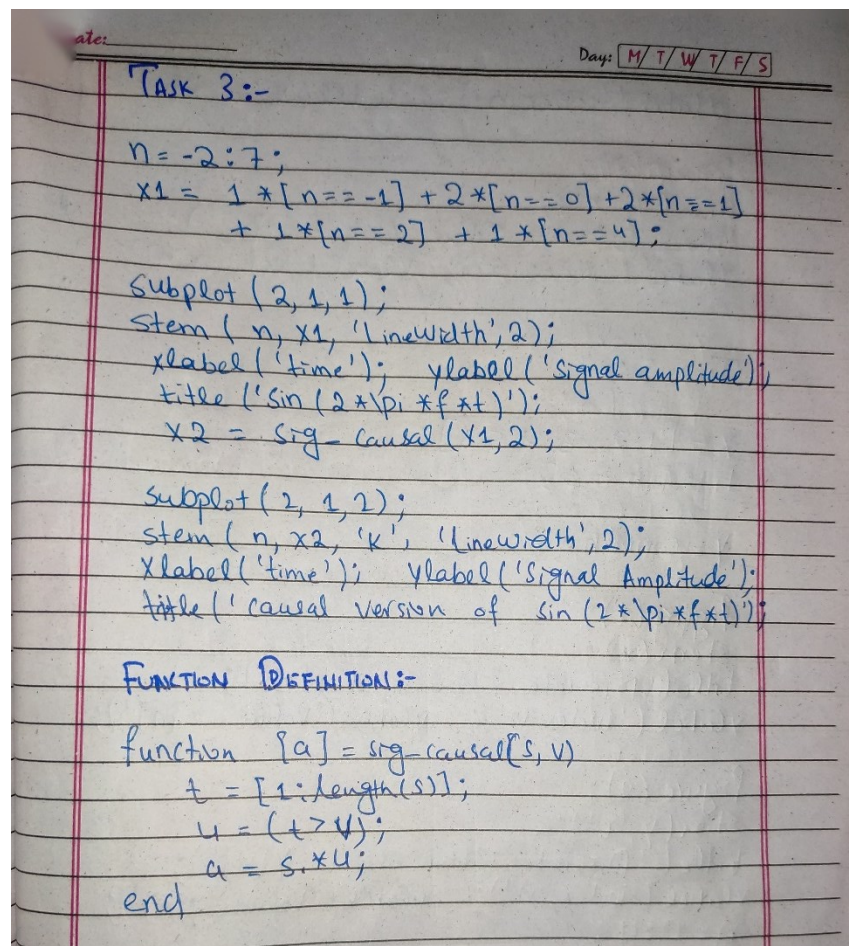 ate:
Day: M T W T F S
TASK 3:-
n = -2:7;
x1 = 1*[n==-1] + 2*[n==0] + 2*[n==1]
+ 1*[n==2] + 1*[n==4];
subplot (2, 1, 1);
stem (n, x1, 'linewidth', 2);
xlabel ('time'); ylabel ('Signal amplitude');
title ('sin (2*\pi *f *t)');
x2 = sig_causal (x1, 2);
subplot (2, 1, 2);
stem (n, x2, 'k', 'linewidth', 2);
xlabel ('time'); ylabel ('Signal Amplitude');
title (' causal version of sin (2*\pi*f*t)');
FUNCTION DEFINITION:-
function [a] = sig_causal(s, v)
t = [1:length(s)];
u = (t>v);
a = s.*u;
end